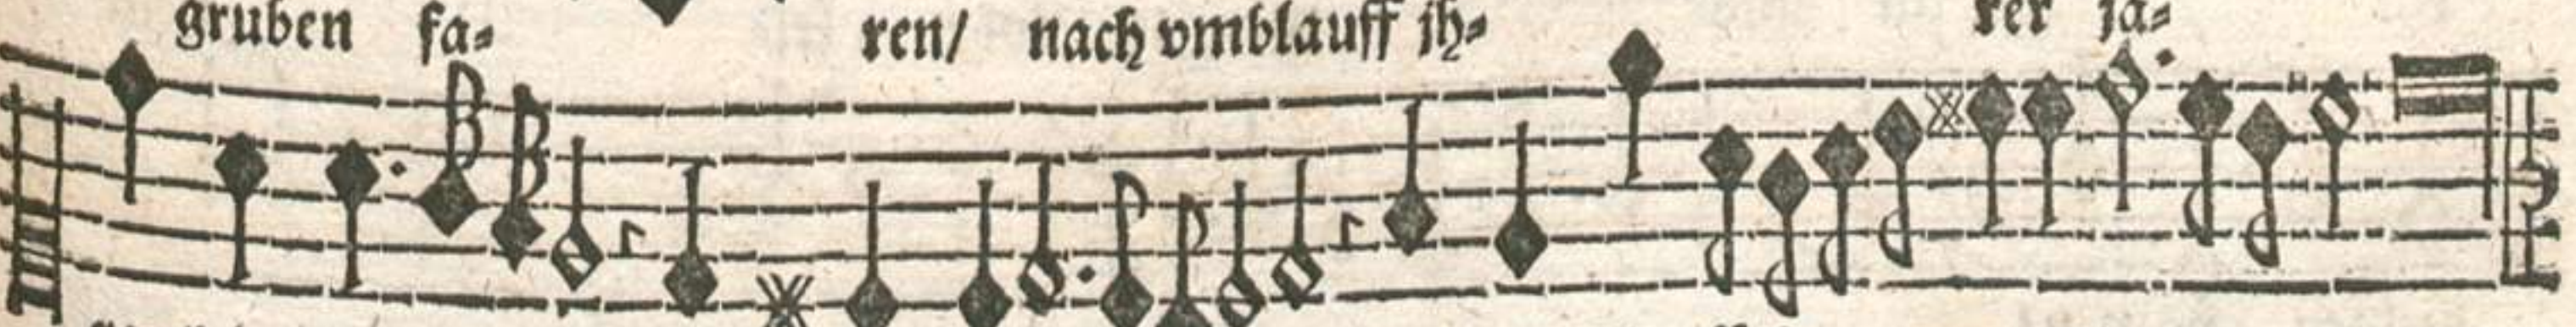 gruben fa⸗ ren/ nach vmblauff jh⸗ rer ja⸗